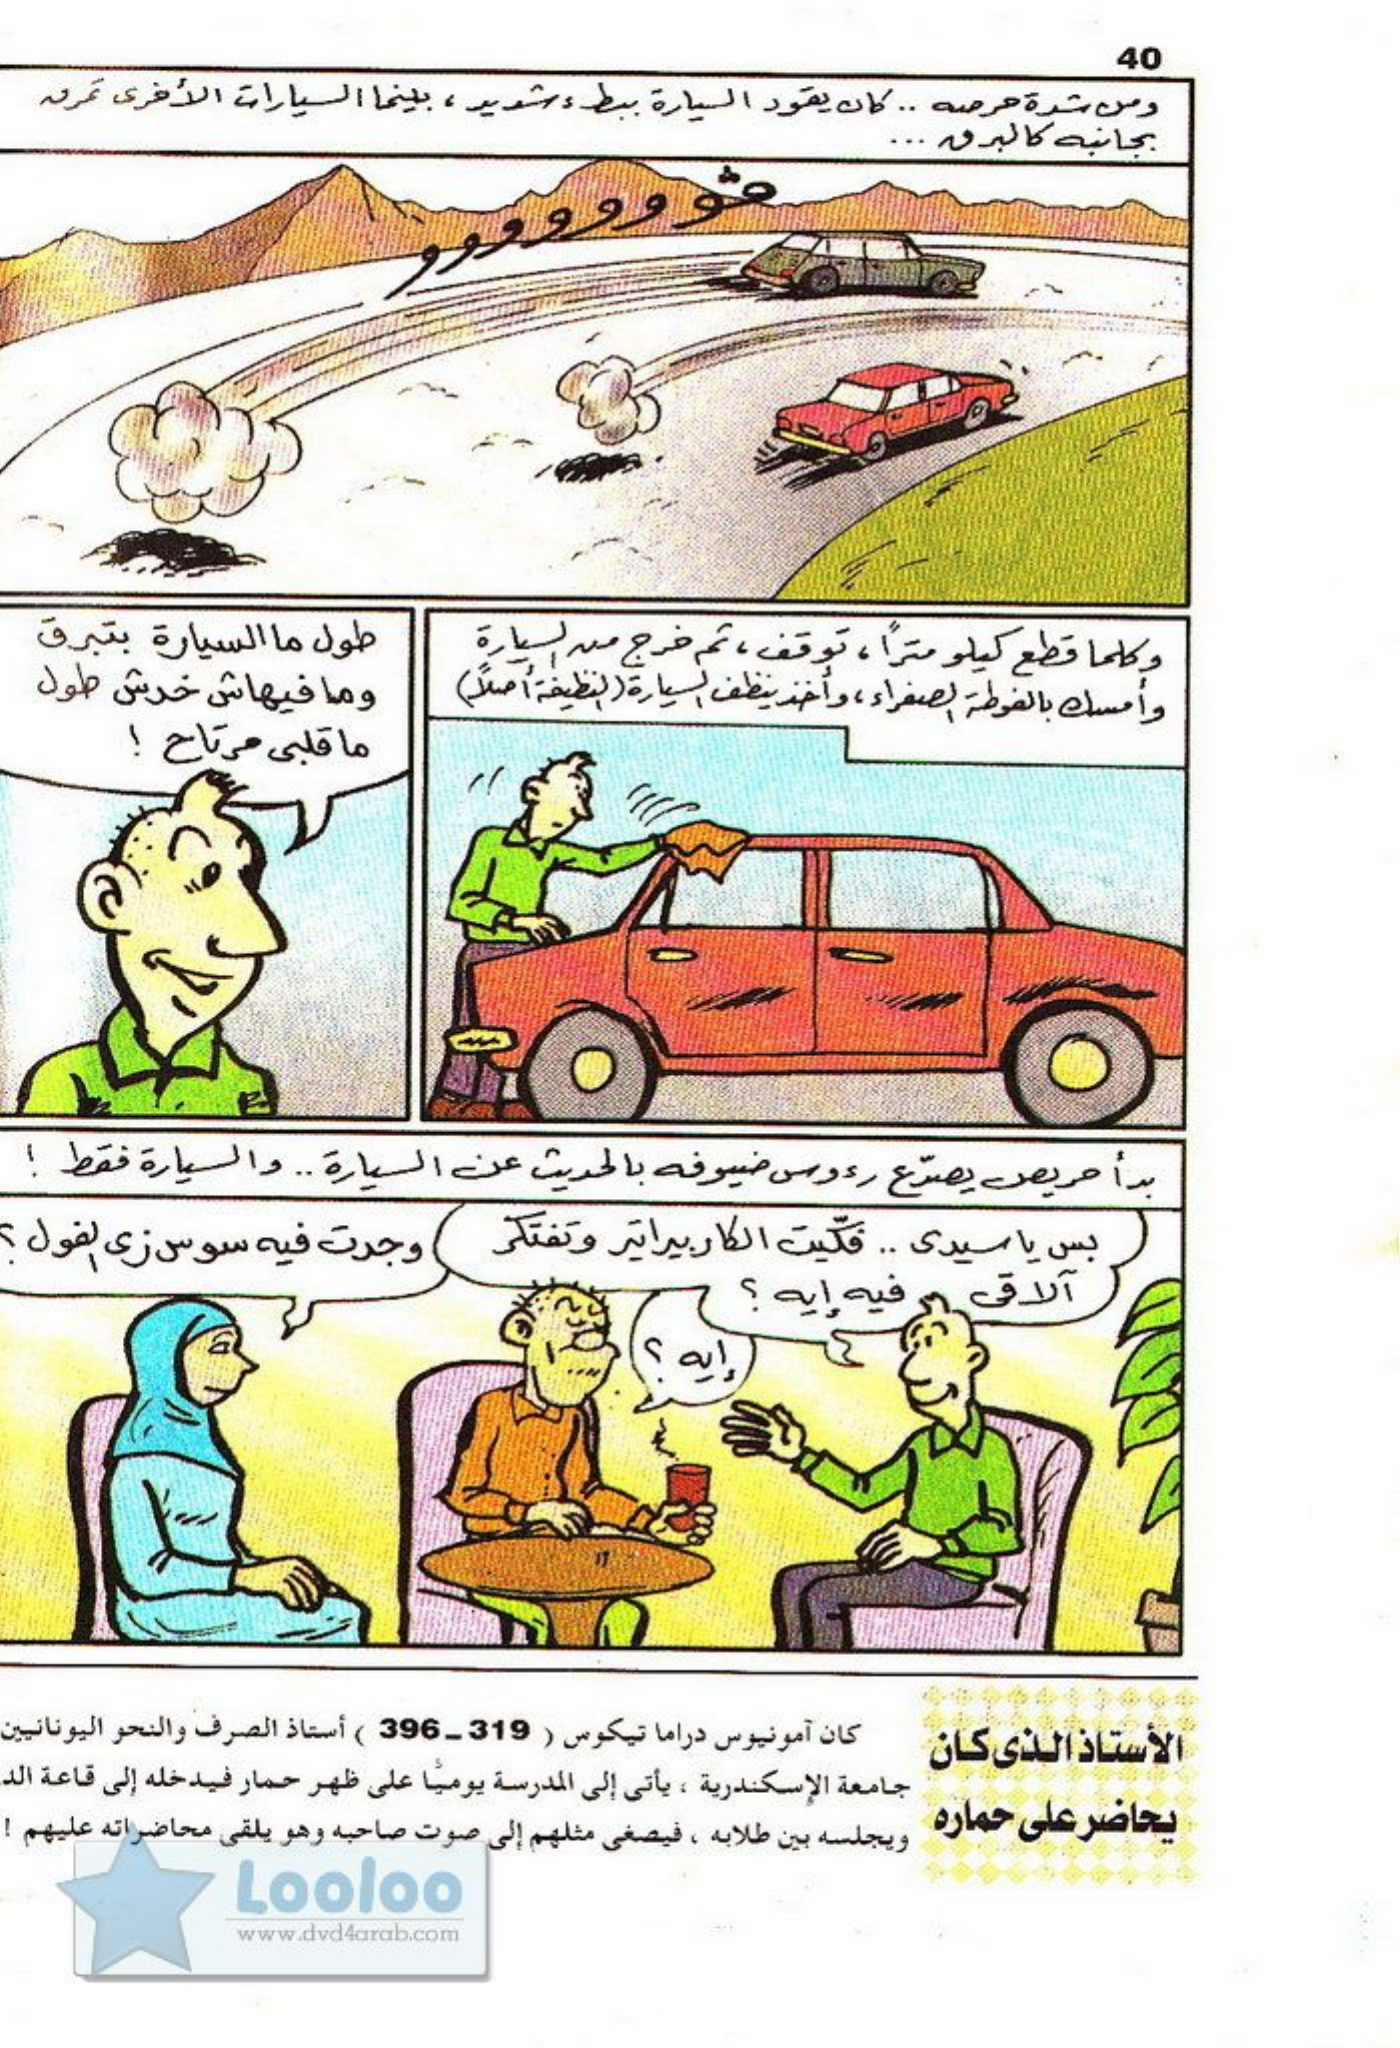 40
ومن شدة حرصه .. كان يقود السيارة ببطء شديد ، بينما السيارات الأخرى تمرق
بجانبه كالبرق ...
ڤوووووووو
وكلما قطع كيلو مترًا ، توقف ، ثم خرج من السيارة
وأمسك بالفوطة الصفراء ، وأخذ ينظف السيارة (النظيفة أصلاً)
طول ما السيارة بتبرق
وما فيهاش خدش طول
ما قلبى مرتاح !
بدأ حريص يصدّع رءوس ضيوفه بالحديث عن السيارة .. والسيارة فقط !
بس يا سيدى .. فكّيت الكاربيراتير وتفتكر
ألاقى فيه إيه ؟
إيه ؟
وجدت فيه سوس زى الفول ؟
الأستاذ الذى كان
يحاضر على حماره
كان آمونيوس دراما تيكوس ( 319 ـ 396 ) أستاذ الصرف والنحو اليونانيين
جامعة الإسكندرية ، يأتى إلى المدرسة يوميًا على ظهر حمار فيدخله إلى قاعة الد
ويجلسه بين طلابه ، فيصغى مثلهم إلى صوت صاحبه وهو يلقى محاضراته عليهم !
Looloo
www.dvd4arab.com